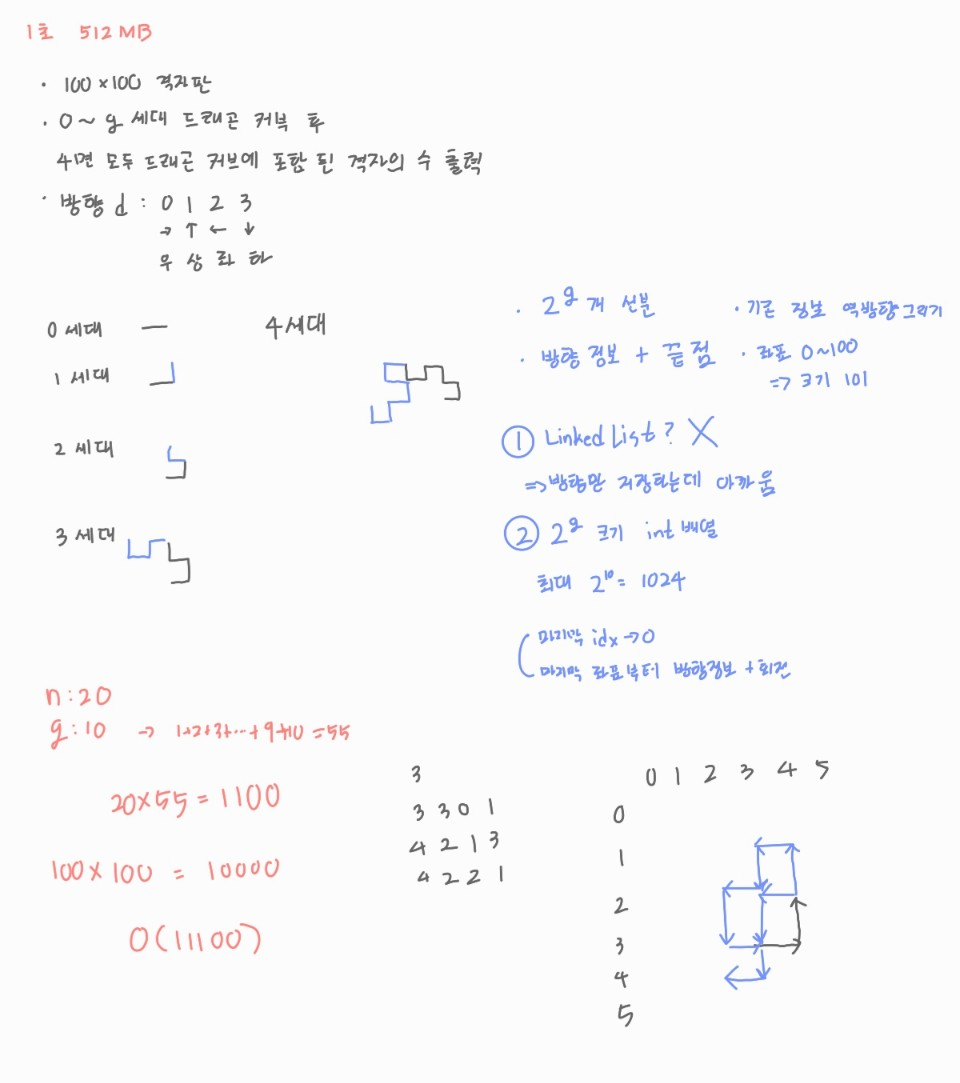 1초 512 MB
· 100×100 격자판
· 0~g 세대 드래곤 커브 후
4면 모두 드래곤 커브에 포함 된 격자의 수 출력
· 방향 d : 0 1 2 3
→ ↑ ← ↓
우 상 좌 하
0 세대
4세대
1 세대
2 세대
3 세대
· 2^g 개 선분
· 기존 정보 역방향 그리기
· 방향 정보 + 끝점
· 좌표 0~100
=> 크기 101
① Linked List? X
=> 방향만 저장하는데 아까움
② 2^g 크기 int 배열
최대 2^10 = 1024
마지막 idx → 0
마지막 좌표부터 방향정보 + 회전
n : 20
g : 10 → 1+2+3+…+9+10 = 55
20×55 = 1100
100×100 = 10000
O(11100)
3
3 3 0 1
4 2 1 3
4 2 2 1
0 1 2 3 4 5
0
1
2
3
4
5